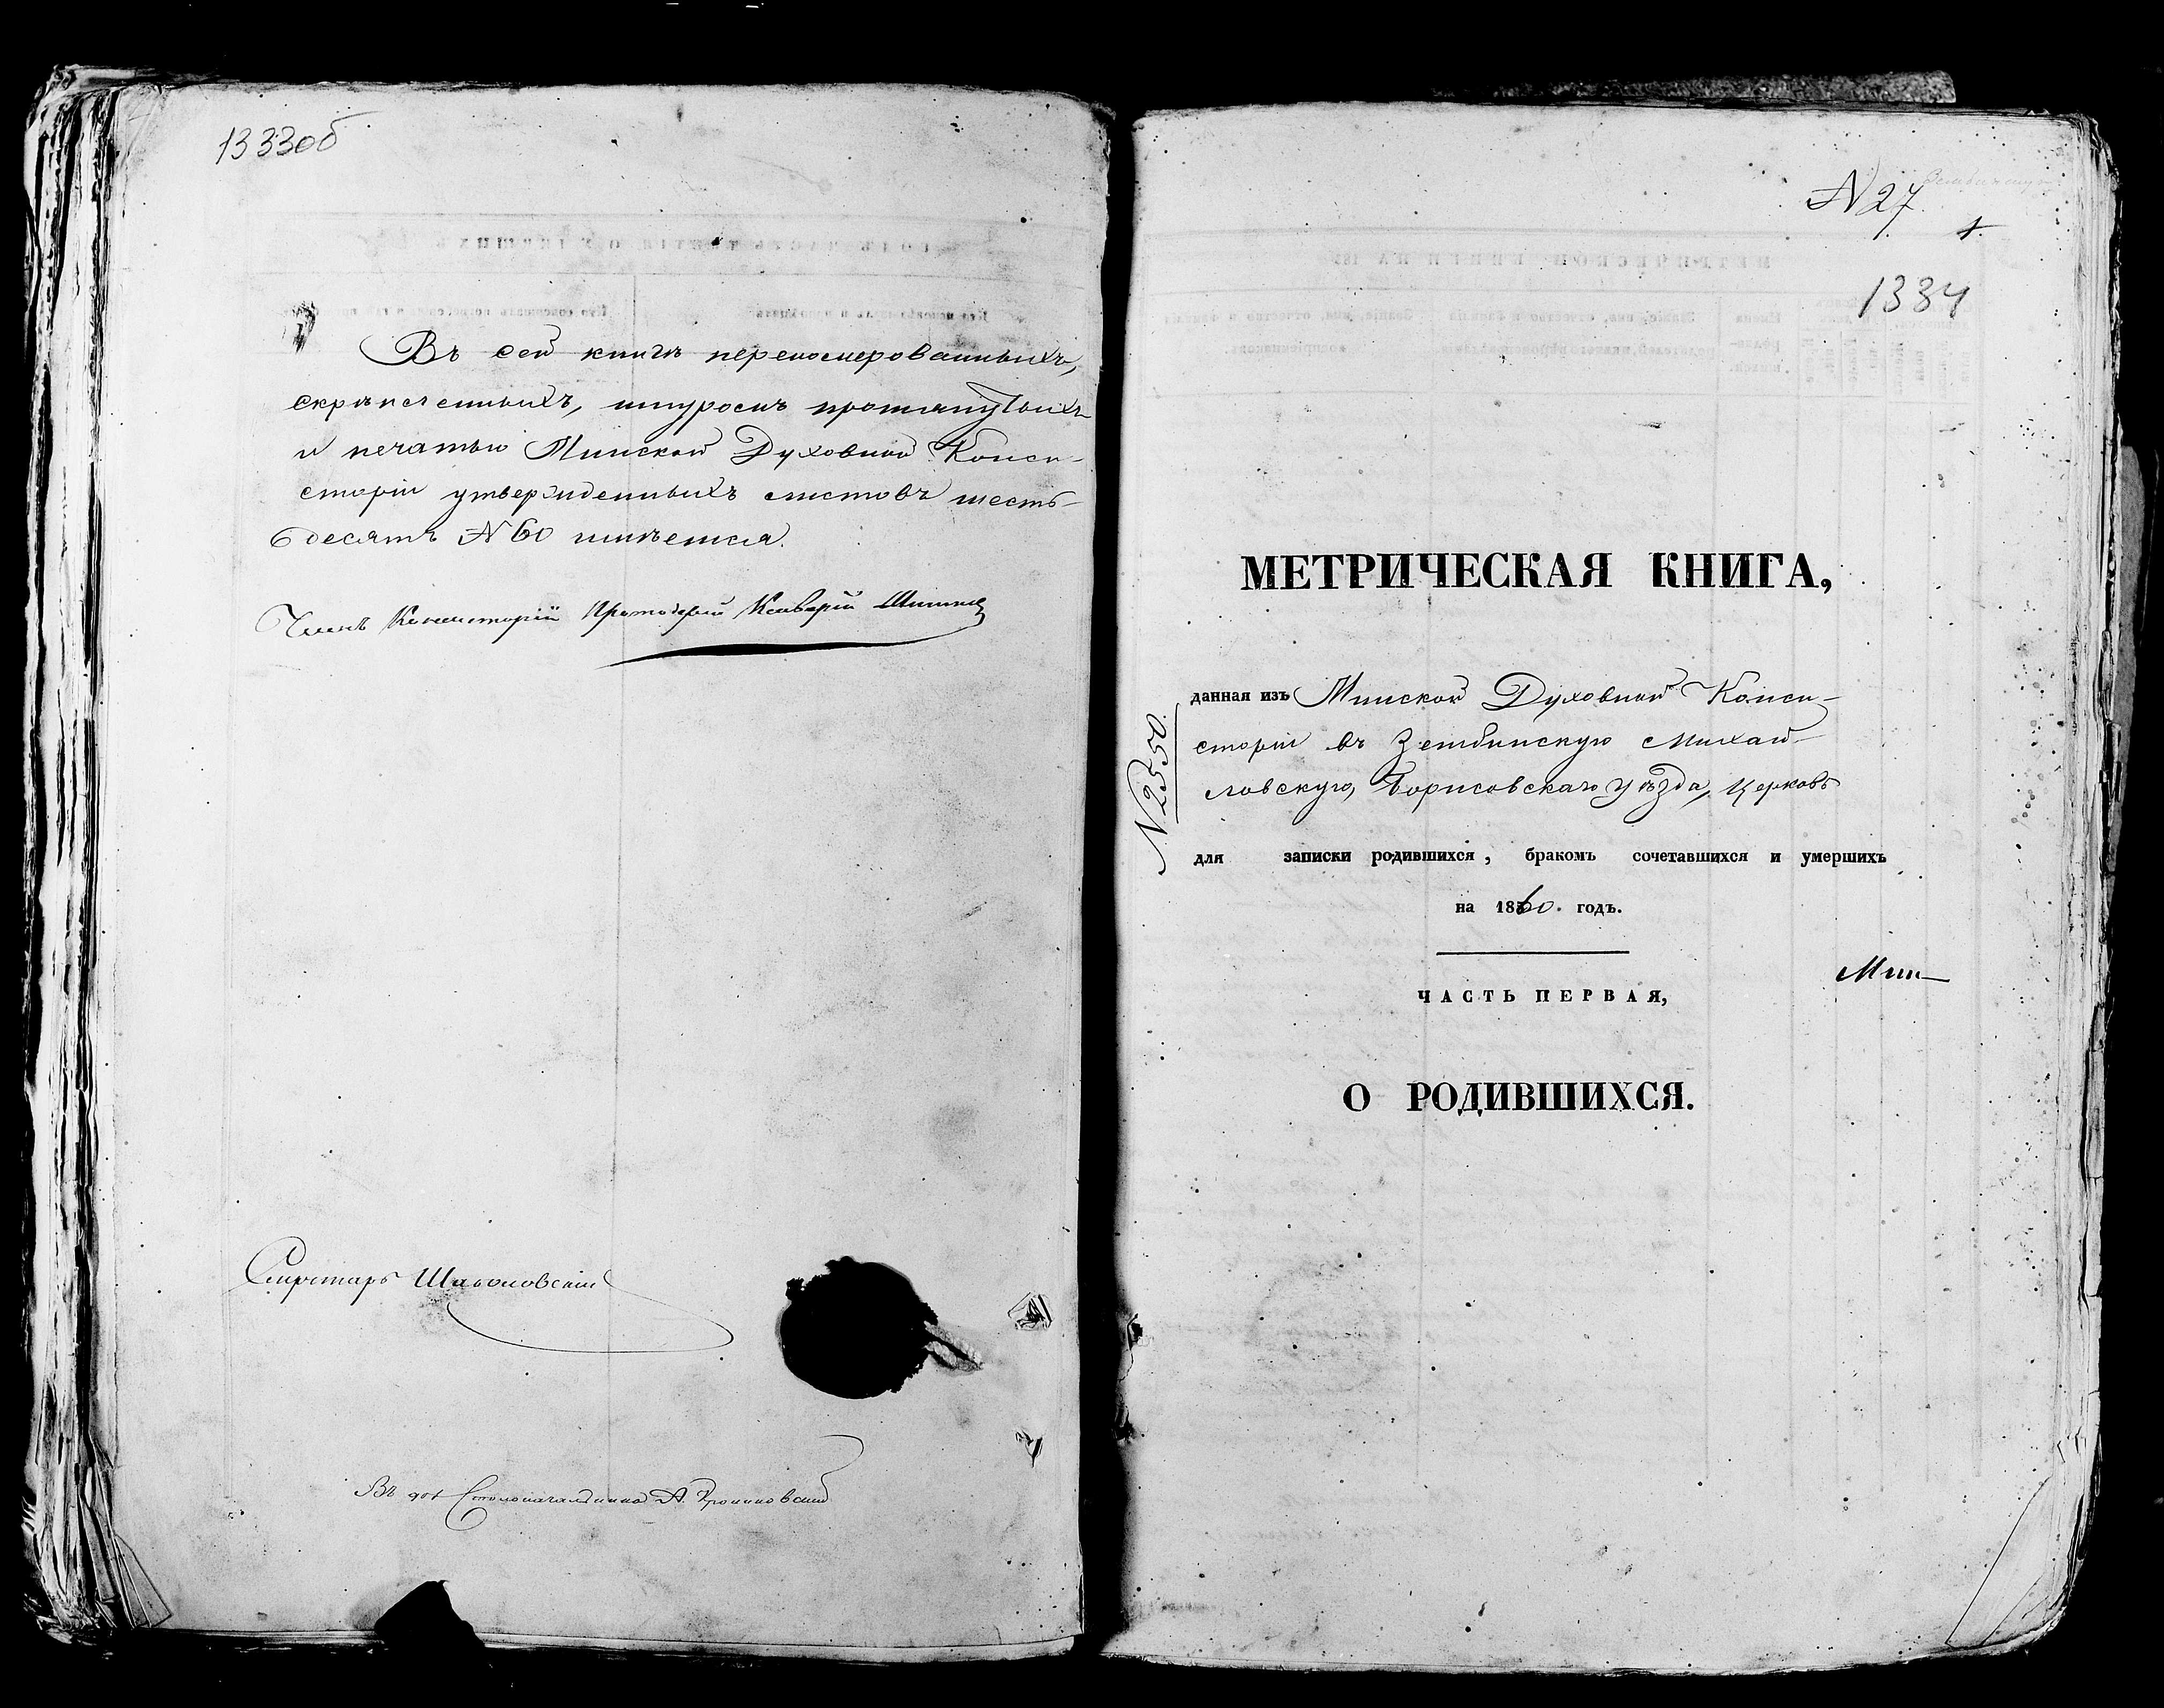 1333об
Въ сей книгѣ перенумерованныхъ,
скрѣпленныхъ, шнуромъ протянутыхъ
и печатью Минской Духовной Конси-
сторіи утвержденныхъ листовъ шесть-
десятъ N 60 имѣется.
Членъ Консисторіи Протоіерей
Секретарь
Въ дол. Столоначальника А.
N 27
1
1334
МЕТРИЧЕСКАЯ КНИГА,
данная изъ Минской Духовной Конси-
сторіи въ Зембинскую Михай-
ловскую, Борисовскаго уѣзда, церковь
N 2550.
для записки родившихся, бракомъ сочетавшихся и умершихъ
на 1860. годъ.
Мин-
ЧАСТЬ ПЕРВАЯ,
О РОДИВШИХСЯ.